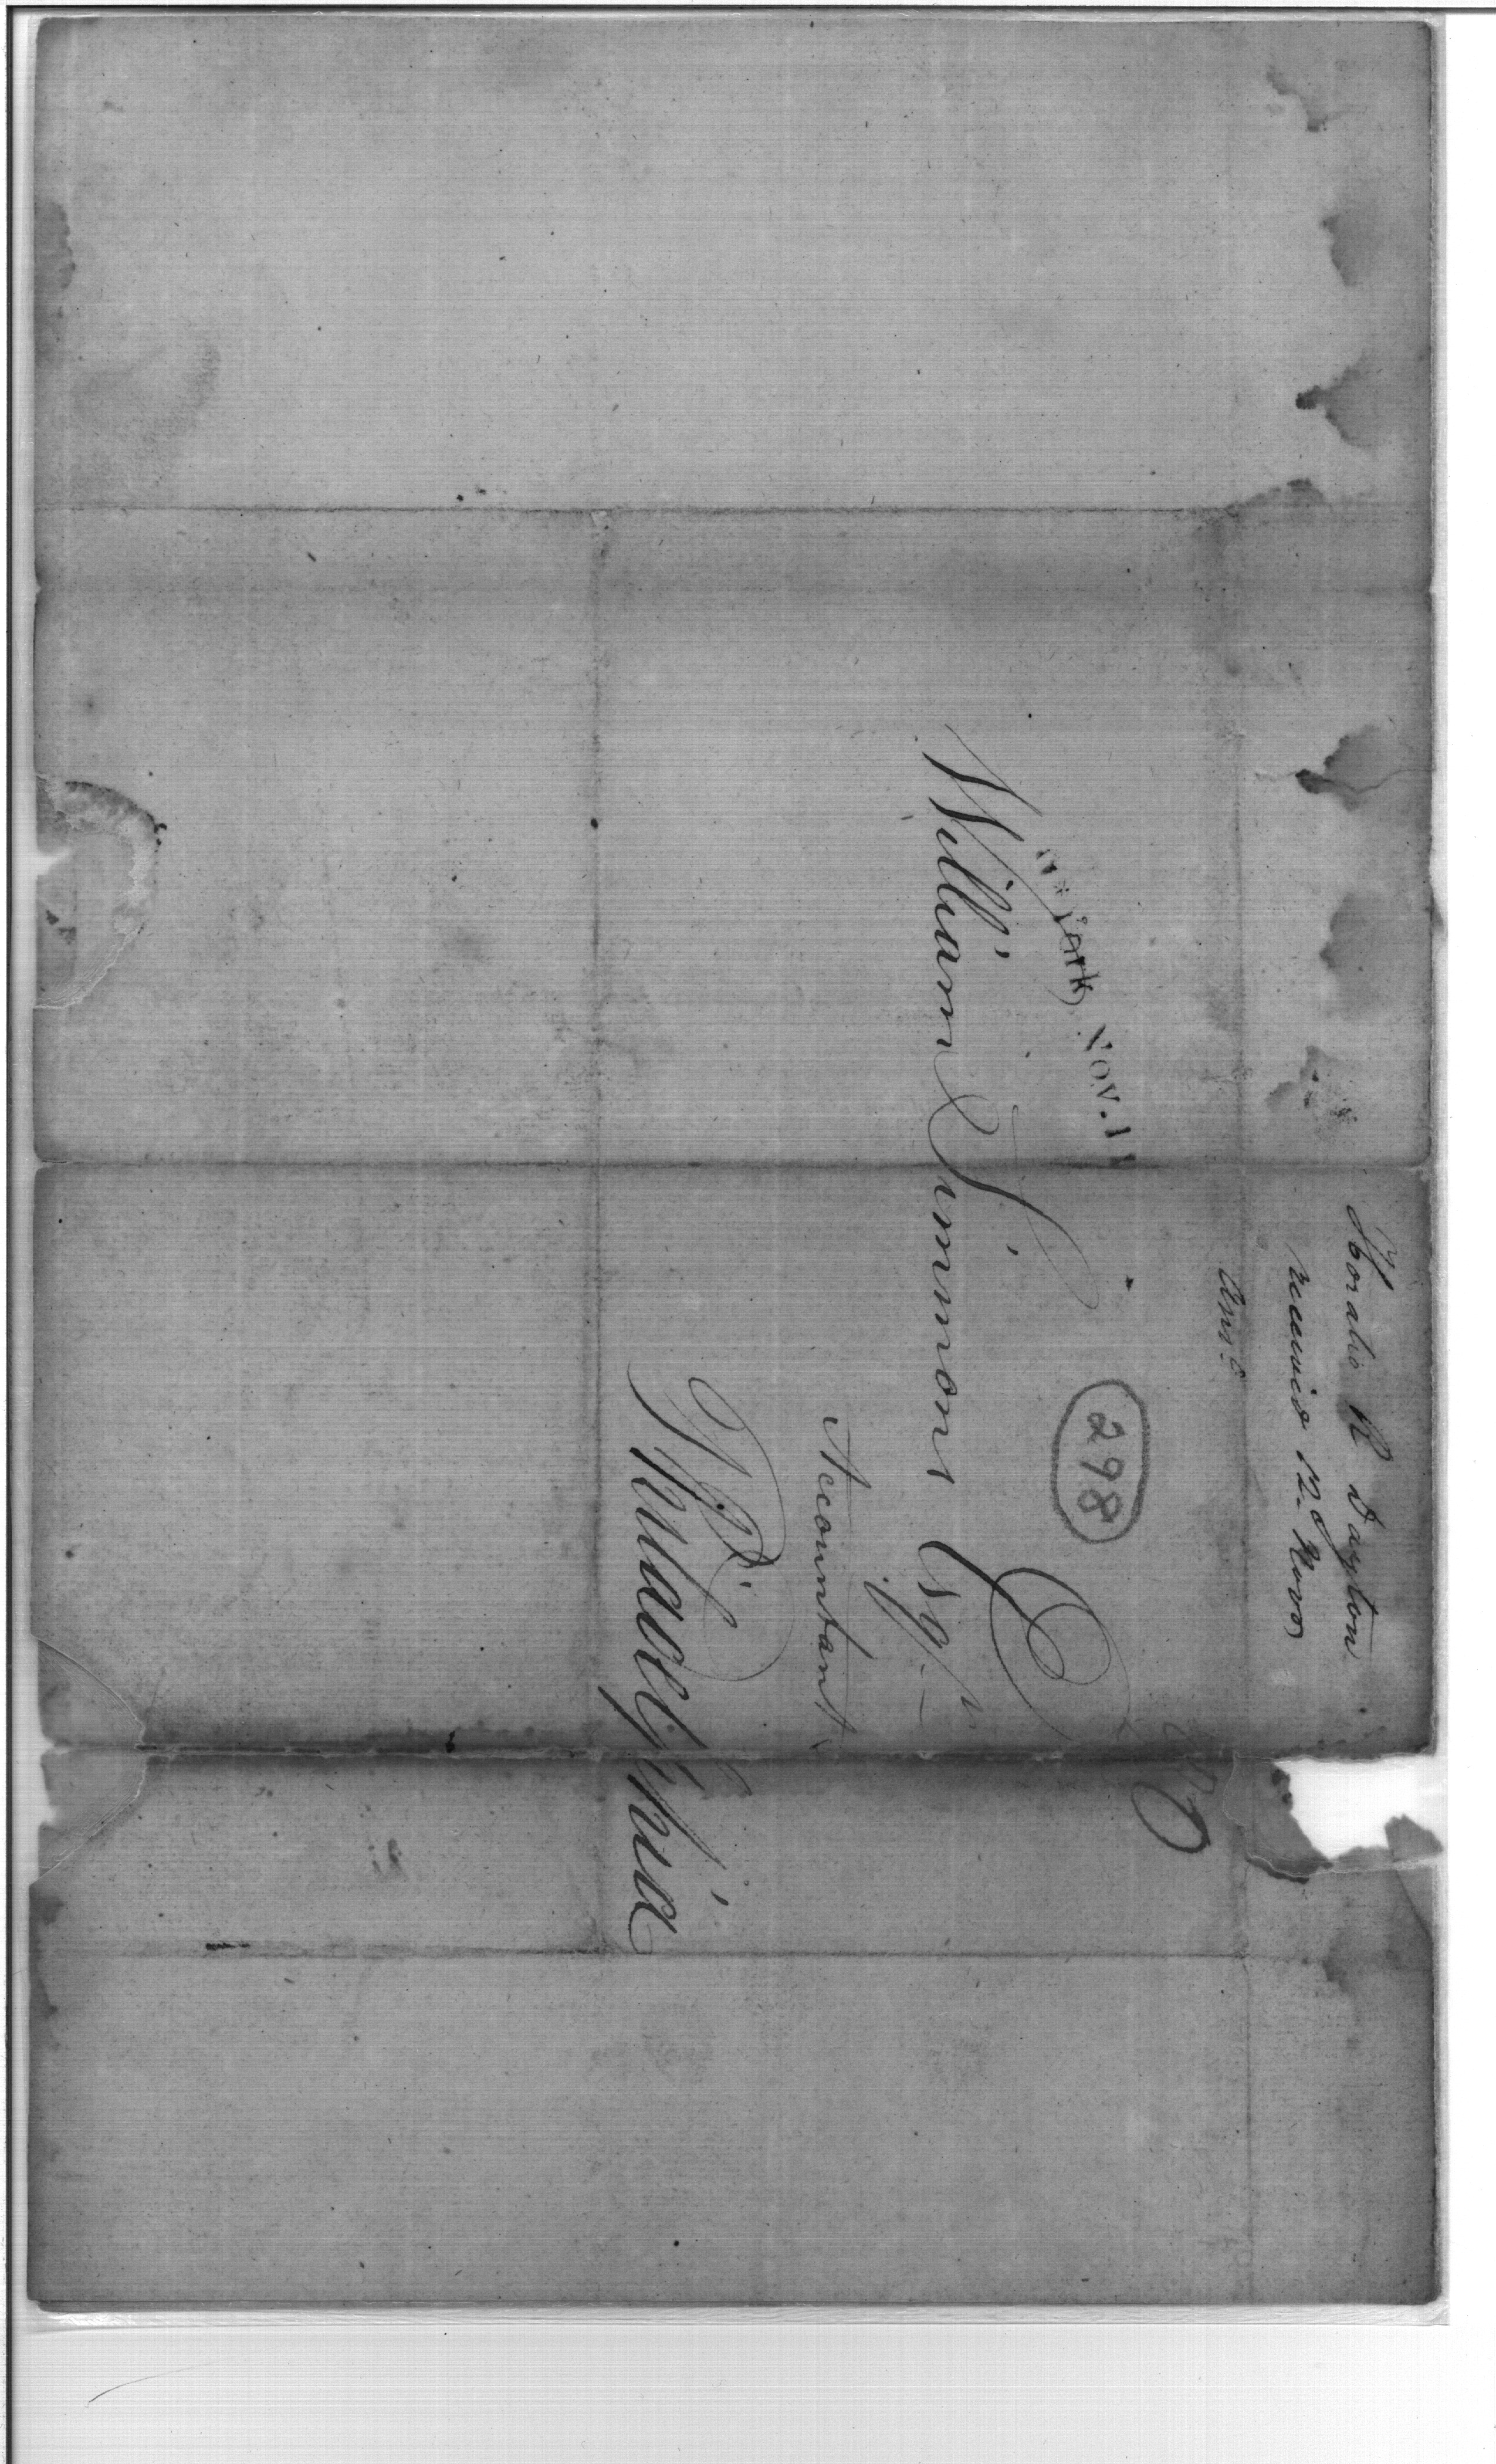 Horatio R Dayton
received 12.o Novr
Ansd
York NOV. 11
298
William Simmons Esqr.
Accountant
W. D.
Philadelphia